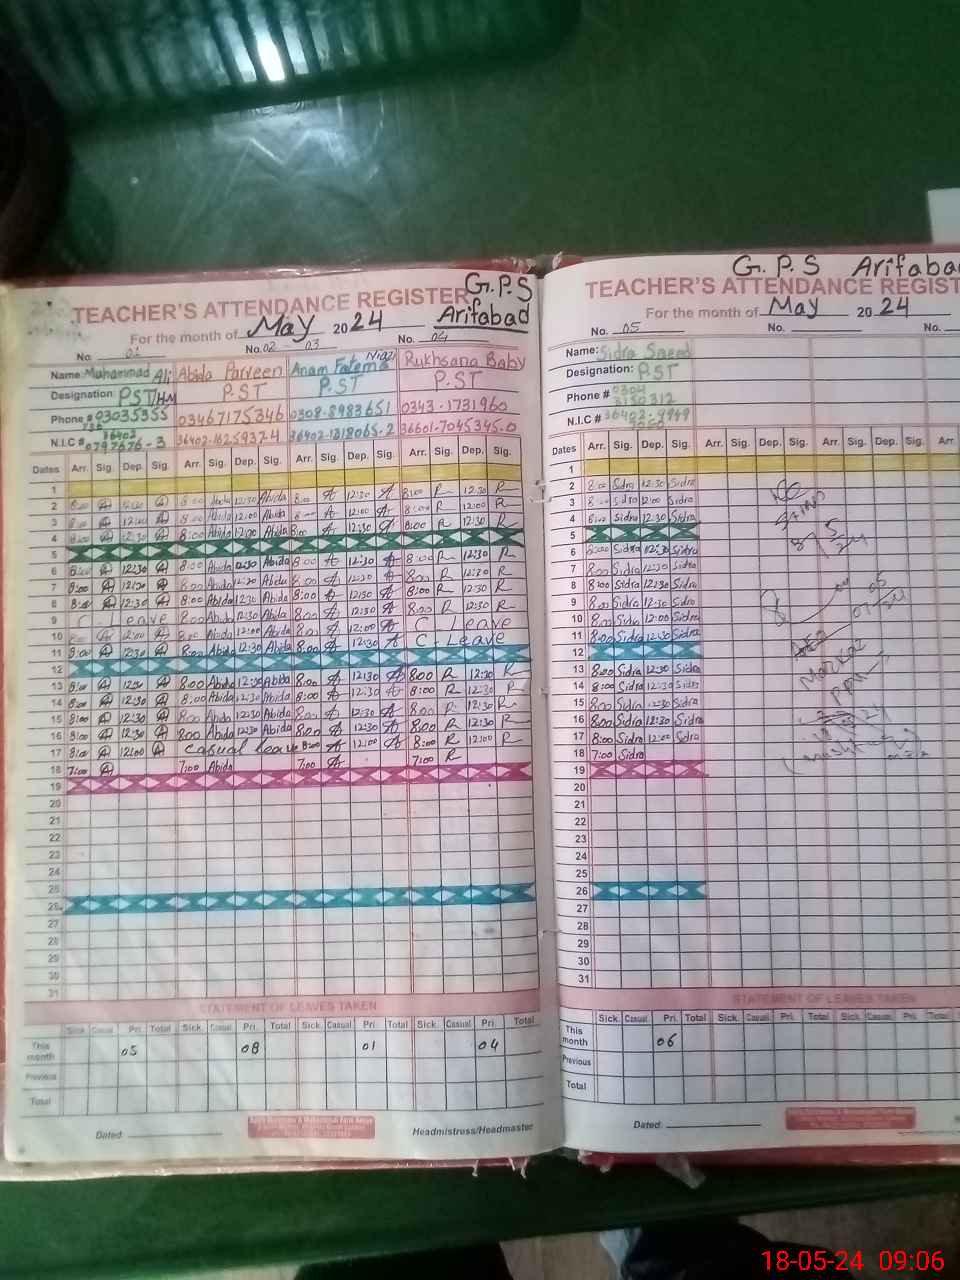 G.P.S
TEACHER'S ATTENDANCE REGISTER
Arifabad
For the month of May 2024
No. 01 No. 02 - 03 No. 04
Name: Muhammad Ali Abida Parveen Anam Fatema Niazi Rukhsana Baby
Designation: PST/HM P.S.T P.ST P.S.T
Phone # 03035355 03467175346 0308-8983651 0343-1731960
N.I.C # 36402 0797676-3 36402-1318065-2 36601-7045345-0
Dates Arr. Sig. Dep. Sig. Arr. Sig. Dep. Sig. Arr. Sig. Dep. Sig. Arr. Sig. Dep. Sig.
1
2 8:00 A A 8:00 Abida 12:30 Abida 8:00 A 12:30 A 8:00 R 12:30 R
3 8:00 A 12:00 A 8:00 Abida 12:00 Abida A 12:00 A 8:00 R 12:00 R
4 8:00 A 12:30 A 8:00 Abida 12:30 Abida 8:00 A 12:30 A 8:00 R 12:30 R
5
6 8:00 A 12:30 A 8:00 Abida 12:30 Abida 8:00 A 12:30 A 8:00 R 12:30 R
7 8:00 A 12:30 A 8:00 Abida 12:30 Abida 8:00 A 12:30 A 8:00 R 12:30 R
8 8:00 A 12:30 A 8:00 Abida 12:30 Abida 8:00 A 12:30 A 8:00 R 12:30 R
9 C. Leave 8:00 Abida 12:30 Abida 8:00 A 12:30 A 8:00 R 12:30 R
10 8:00 A 12:00 A 8:00 Abida 12:00 Abida 8:00 A 12:00 A C. Leave
11 8:00 A 12:30 A 8:00 Abida 12:30 Abida 8:00 A 12:30 A C. Leave
12
13 8:00 A 12:30 A 8:00 Abida 12:30 Abida 8:00 A 12:30 A 8:00 R 12:30 R
14 8:00 A 12:30 A 8:00 Abida 12:30 Abida 8:00 A 12:30 A 8:00 R 12:30 R
15 8:00 A 12:30 A 8:00 Abida 12:30 Abida 8:00 A 12:30 A 8:00 R 12:30 R
16 8:00 A 12:30 A 8:00 Abida 12:30 Abida 8:00 A 12:30 A 8:00 R 12:30 R
17 8:00 A 12:00 A Casual Leave 8:00 A 12:00 A 8:00 R 12:00 R
18 7:00 A 7:00 Abida 7:00 A 7:00 R
19
20
21
22
23
24
25
26
27
28
29
30
31
STATEMENT OF LEAVES TAKEN
Sick Casual Pri. Total Sick. Casual Pri. Total Sick. Casual Pri. Total Sick. Casual Pri. Total
This month 05 08 01 04
Previous
Total
Dated: Headmistress/Headmaster
G.P.S Arifabad
TEACHER'S ATTENDANCE REGIST
For the month of May 2024
No. 05 No. No.
Name: Sidra Saeed
Designation: P.ST
Phone # 0304 3130312
N.I.C # 36402-9949
Dates Arr. Sig. Dep. Sig. Arr. Sig. Dep. Sig. Arr. Sig. Dep. Sig. Arr.
1
2 8:00 Sidra 12:30 Sidra
3 8:00 Sidra 12:00 Sidra
4 8:00 Sidra 12:30 Sidra
5
6 8:00 Sidra 12:30 Sidra
7 8:00 Sidra 12:30 Sidra
8 8:00 Sidra 12:30 Sidra
9 8:00 Sidra 12:30 Sidra
10 8:00 Sidra 12:00 Sidra
11 8:00 Sidra 12:30 Sidra
12
13 8:00 Sidra 12:30 Sidra
14 8:00 Sidra 12:30 Sidra
15 8:00 Sidra 12:30 Sidra
16 8:00 Sidra 12:30 Sidra
17 8:00 Sidra 12:00 Sidra
18 7:00 Sidra
19
20
21
22
23
24
25
26
27
28
29
30
31
AEO
Markaz
STATEMENT OF LEAVES TAKEN
Sick. Casual Pri. Total Sick. Casual Pri. Total Sick. Casual Pri. Total
This month 06
Previous
Total
Dated:
18-05-24 09:06